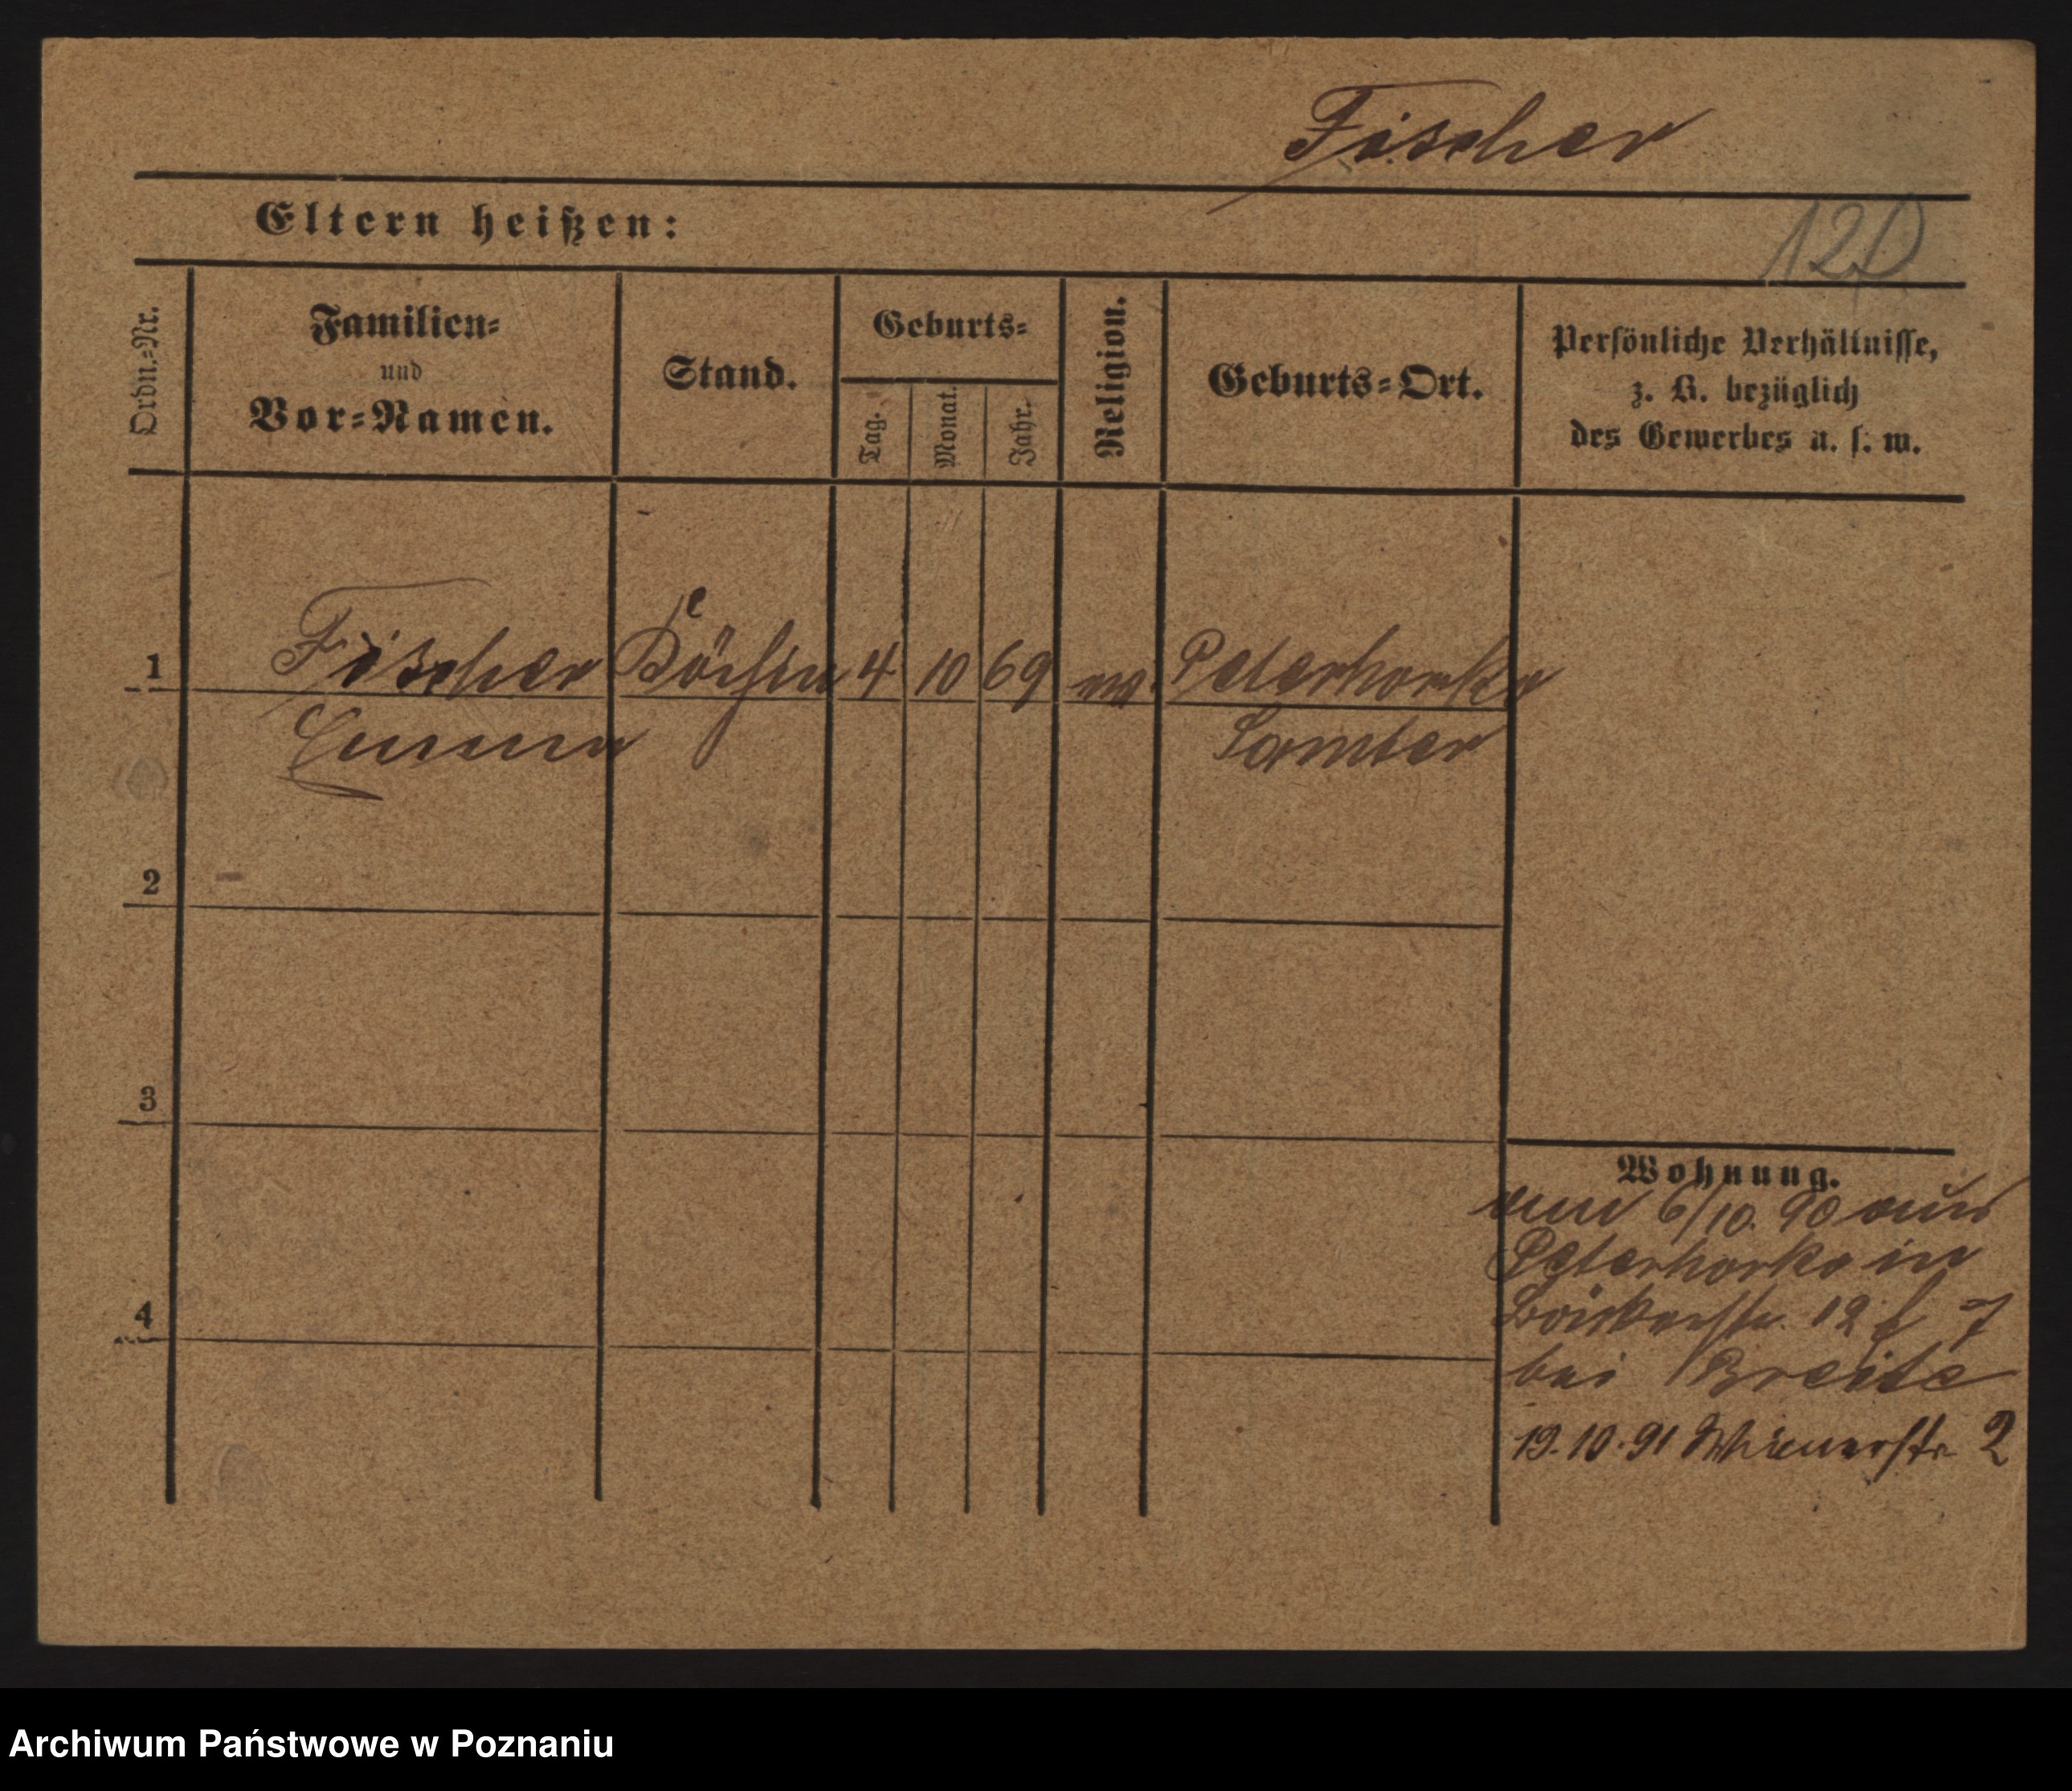 Fischer
Eltern heißen:
120
Ordn.-Nr.
Familien-
und
Vor-Namen.
Stand.
Geburts-
Tag.
Monat.
Jahr.
Religion.
Geburts-Ort.
Persönliche Verhältnisse,
z. B. bezüglich
des Gewerbes u. s. w.
1 Fischer Köchin 4 10 69 Peterkowko
Emma Samter
2
3
4
Wohnung.
6/10. 90 aus
Peterkowko in
12 7
bei Breite
19.10.91 Wienerstr 2
Archiwum Państwowe w Poznaniu